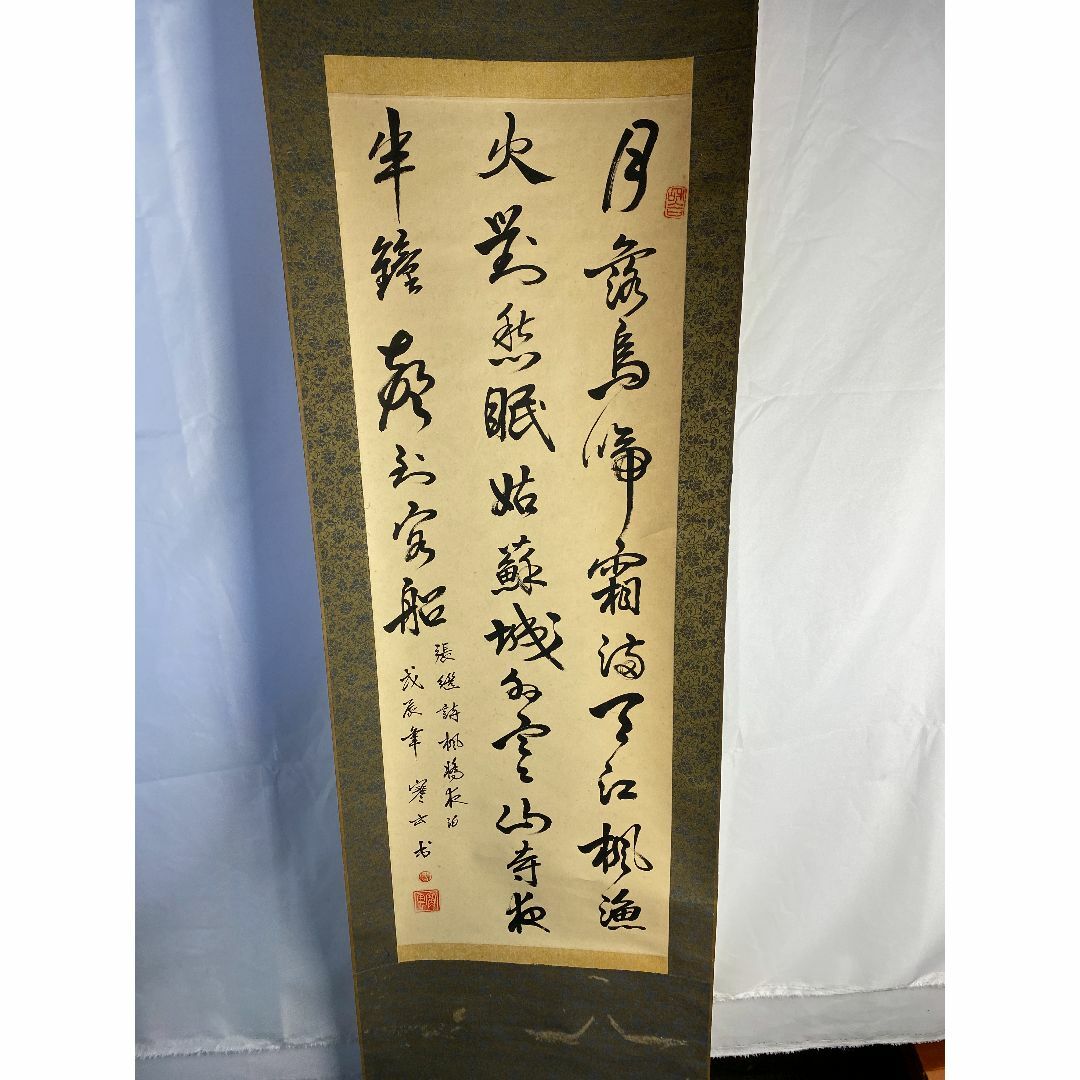 月落烏啼霜満天江楓漁
火對愁眠姑蘇城外寒山寺夜
半鐘聲到客船
張継詩楓橋夜泊
戊辰年寒云书